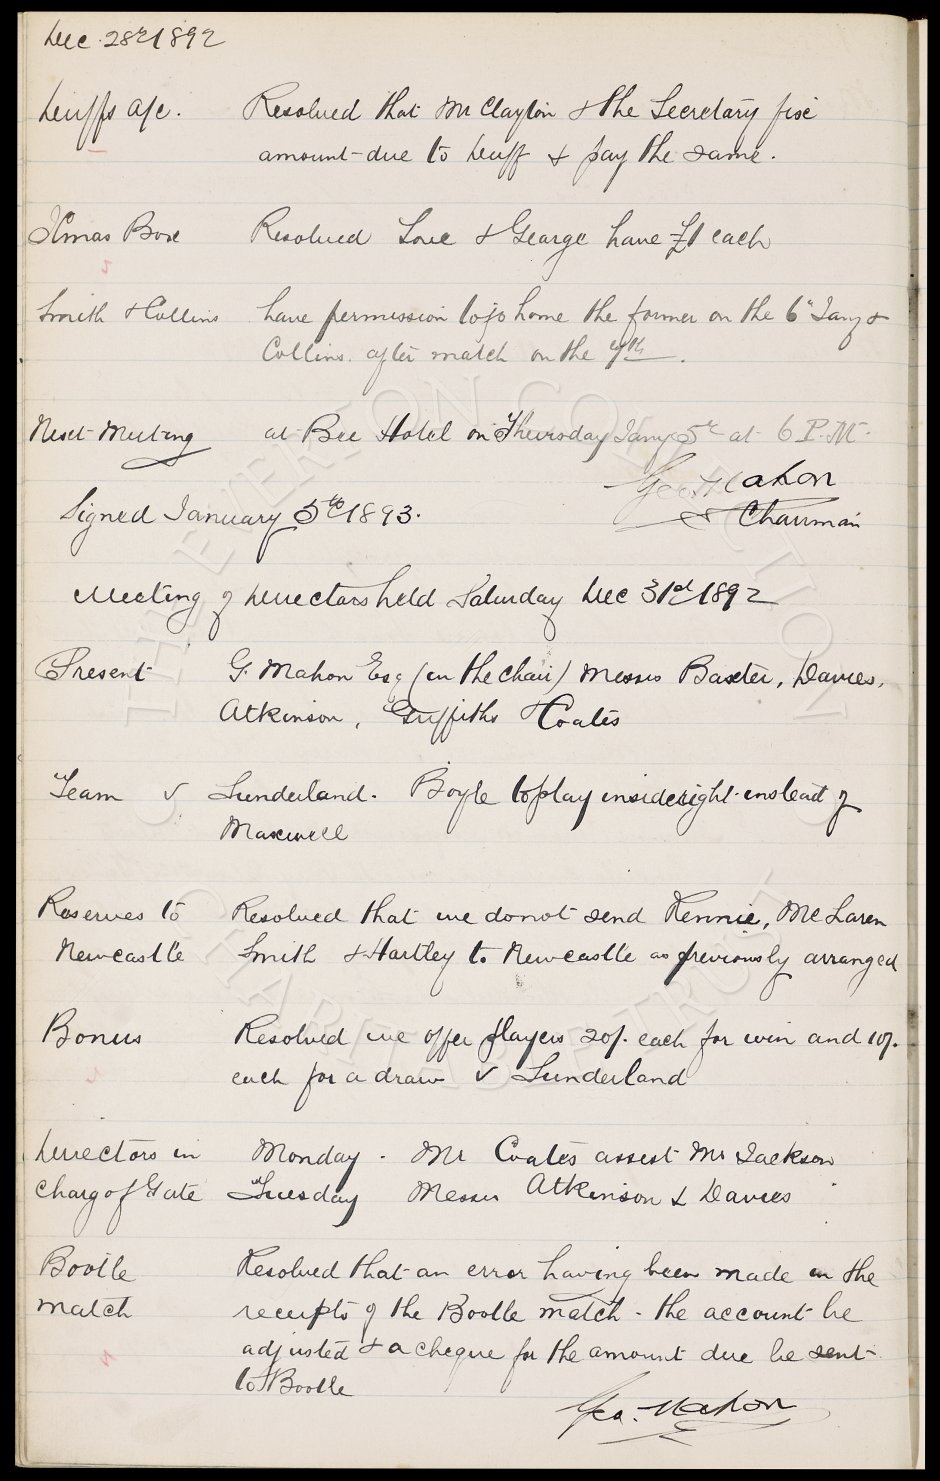 Dec. 28th 1892
Duffs a/c. Resolved that Mr Clayton & the Secretary fix
amount due to Duff & pay the same.
Xmas Box Resolved Love & George have £1 each
Smith & Collins have permission to go home the former on the 6th Jany &
Collins after match on the 7th.
Next Meeting at Bee Hotel on Thursday Jany 5th at 6 P.M.
Geo. Mahon
Chairman
Signed January 5th 1893.
Meeting of Directors held Saturday Dec 31st 1892
Present G. Mahon Esq (in the chair) Messrs Baxter, Davies,
Atkinson, Griffiths & Coates
Team v Sunderland. Boyle to play inside right instead of
Maxwell
Reserves to Resolved that we do not send Rennie, McLaren
Newcastle Smith & Hartley to Newcastle as previously arranged
Bonus Resolved we offer players 20/- each for win and 10/-
each for a draw v Sunderland
Directors in Monday - Mr Coates assist Mr Jackson
Charg of Gate Tuesday Messrs Atkinson & Davies
Bootle Resolved that an error having been made in the
match receipts of the Bootle match - the account be
adjusted & a cheque for the amount due be sent
to Bootle
Geo. Mahon
THE EVERTON COLLECTION
CHARITABLE TRUST